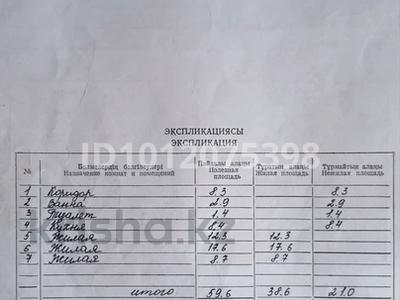 ЭКСПЛИКАЦИЯСЫ
ЭКСПЛИКАЦИЯ
ID1012075398
№ Бөлмелердің белгіленуі Пайдалы алаңы Тұратын алаңы Тұрмайтын алаңы
Назначение комнат и помещений Полезная площадь Жилая площадь Нежилая площадь
1 Коридор 8.3 8.3
2 Ванна 2.9 2.9
3 Туалет 1.4 1.4
4 Кухня 8.4 8.4
5 Жилая 12.3 12.3
6 Жилая 17.6 17.6
7 Жилая 8.7 8.7
итого 59.6 38.6 21.0
krisha.kz